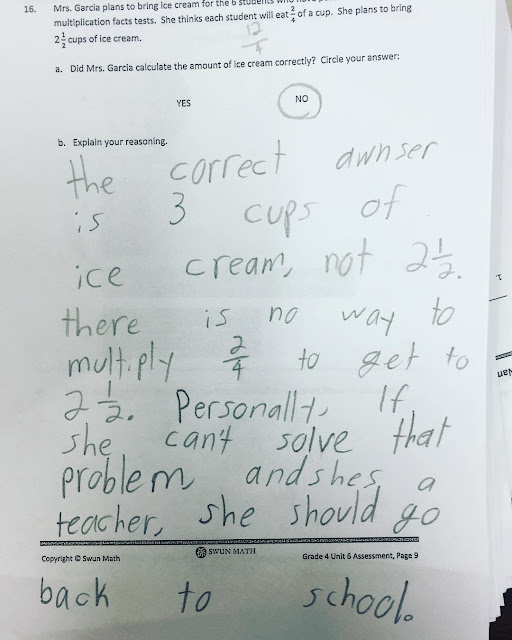 16. Mrs. Garcia plans to bring ice cream for the 6 students who
multiplication facts tests. She thinks each student will eat 2/4 of a cup. She plans to bring
2 1/2 cups of ice cream.
12/4
a. Did Mrs. Garcia calculate the amount of ice cream correctly? Circle your answer:
YES NO
b. Explain your reasoning.
the correct awnser
is 3 cups of
ice cream, not 2 1/2.
there is no way to
multiply 2/4 to get to
2 1/2. Personally, If
she can't solve that
problem and shes a
teacher, she should go
Copyright © Swun Math SWUN MATH Grade 4 Unit 6 Assessment, Page 9
back to school.